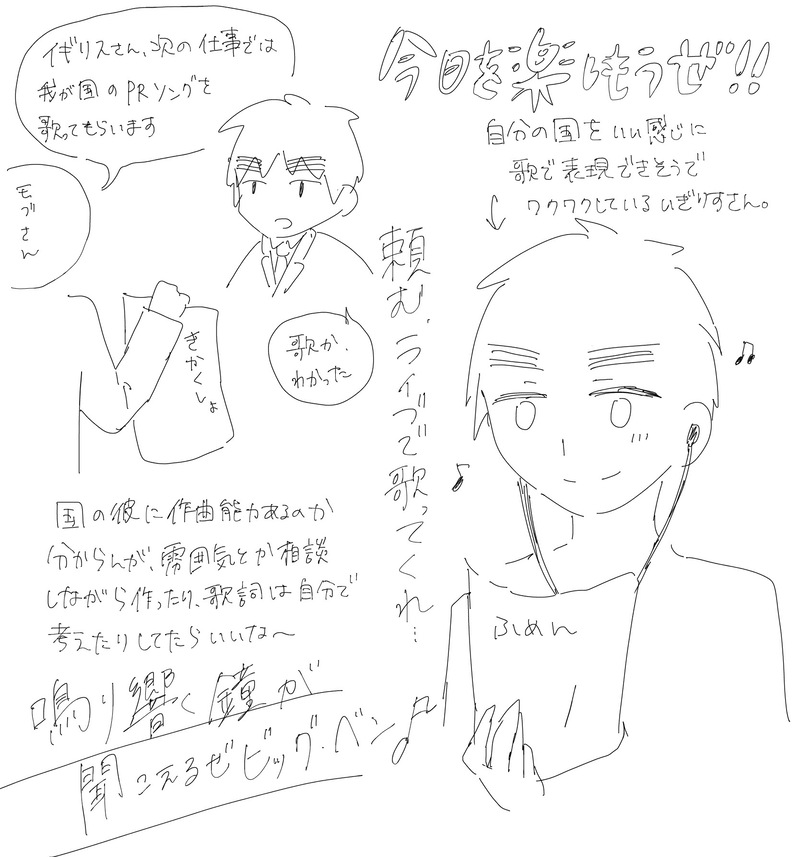 イギリスさん、次の仕事では
我が国のPRソングを
歌ってもらいます
モブさん
きかくしょ
歌か、
わかった
今日を楽しもうぜ!!
自分の国をいい感じに
歌で表現できそうで
ワクワクしているいぎりすさん。
頼む、ライブで歌ってくれ…
ふめん
国の彼に作曲能力あるのか
分からんが、雰囲気とか相談
しながら作ったり、歌詞は自分で
考えたりしてたらいいな〜
鳴り響く鐘が
聞こえるぜビッグ・ベン